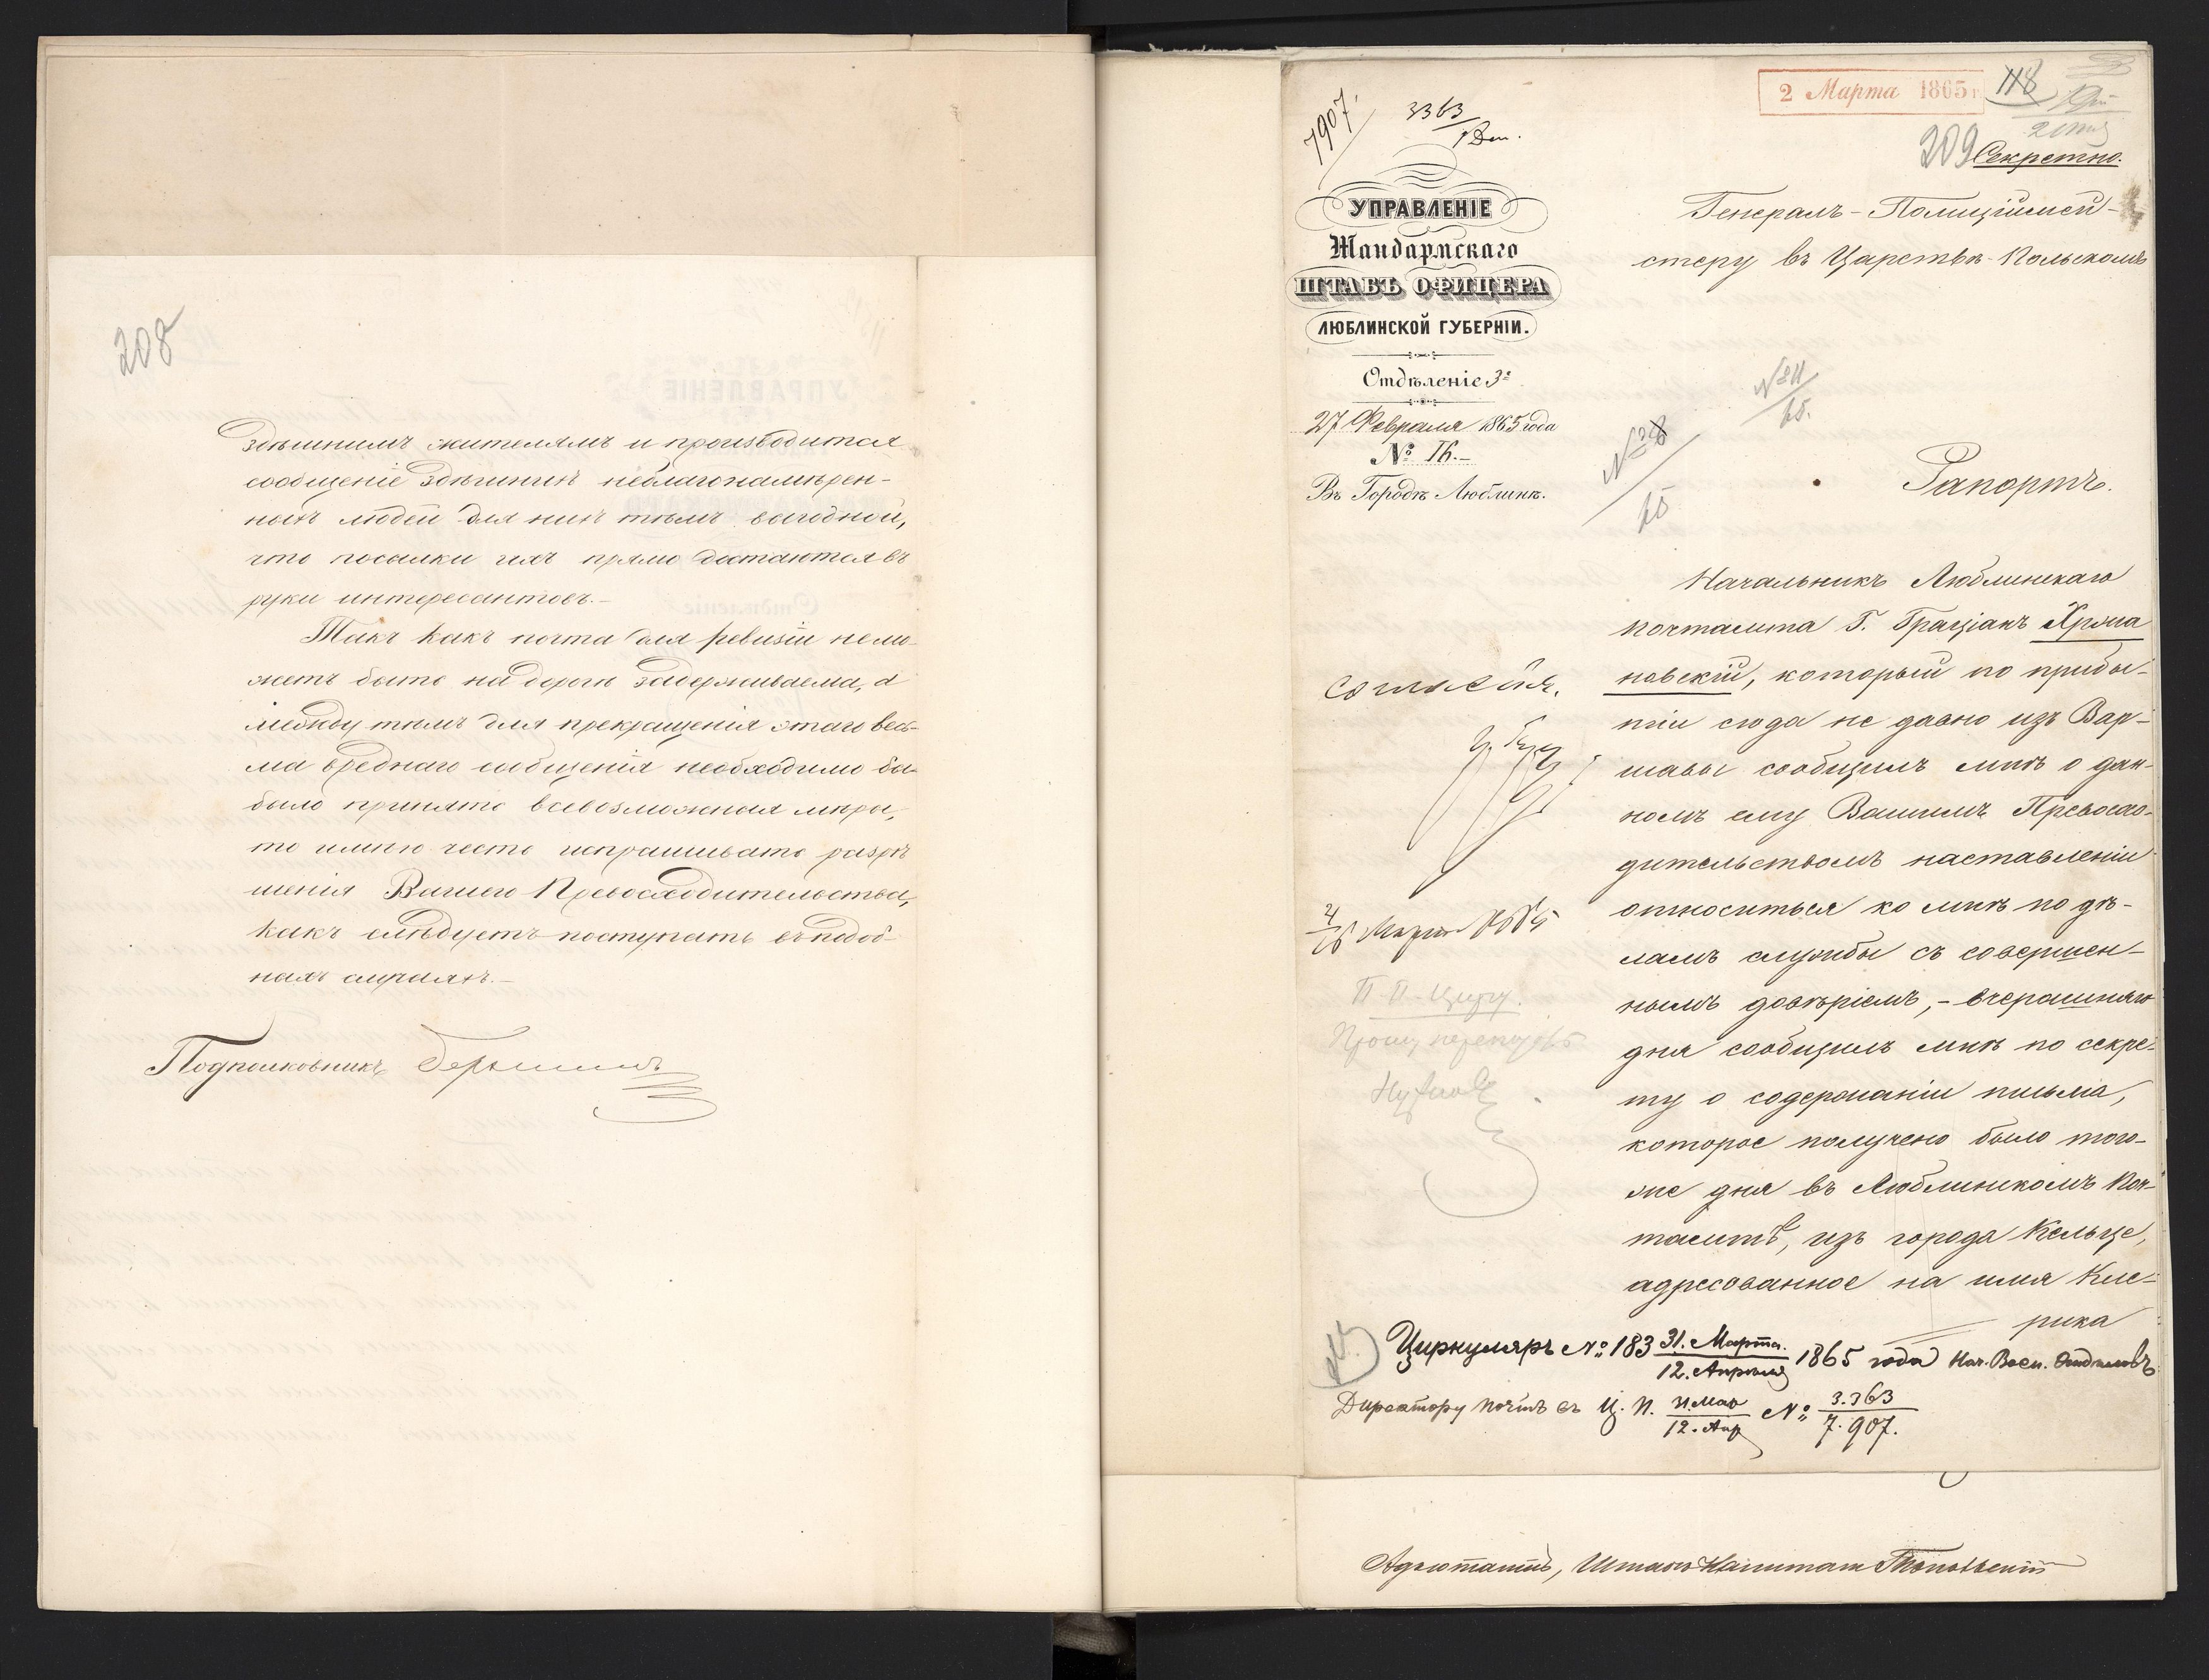 208
здѣшнимъ жителямъ и производится
сообщеніе здѣшнихъ неблагонамѣрен-
ныхъ людей для нихъ тѣмъ выгодной,
что посылки ихъ прямо достаются въ
руки интересантовъ.-
Такъ какъ почта для ревизіи не мо-
жетъ быть на дороге задерживаема, а
между тѣмъ для прекращенія этаго весь-
ма вреднаго сообщенія необходимо бы
было принять всевозможныя мѣры,
то имѣю честь испрашивать разрѣ
шенія Вашего Превосходительства,
какъ слѣдуетъ поступать въ подоб-
ныхъ случаяхъ.-
Подполковникъ
2 Марта 1865 г
118
7907
3363
209 Секретно.
УПРАВЛЕНІЕ
Жандармскаго
ШТАБЪ ОФИЦЕРА
ЛЮБЛИНСКОЙ ГУБЕРНІИ.
Отдѣленіе 3е
27 Февраля 1865 года
№ 16.-
Въ Городѣ Люблинѣ.
Генералъ-Полиціймей-
стеру въ Царствѣ Польскомъ
№ 11
65.
№ 28
65
Рапортъ.
Начальникъ Люблинскаго
Почтамта Г. Граціанъ Хржа
новскій, который по прибы-
тіи сюда не давно изъ Вар-
шавы сообщилъ мнѣ о дан-
номъ ему Вашимъ Превосхо-
дительствомъ наставленіи
относиться ко мнѣ по дѣ-
ламъ службы съ совершен-
нымъ довѣріемъ,- вчерашняго
дня сообщилъ мнѣ по секре-
ту о содержаніи письма,
которое получено было того-
же дня въ Люблинскомъ Поч-
тамтѣ, изъ города Кельце,
адресованное на имя Кле-
рика
Согласенъ.
4/16 Марта 1865
Циркуляръ № 183 31. Марта/12. Апрѣля 1865 года Нач. Воен. Отдѣловъ
Директору почтъ въ Ц. П. 31. Мар/12. Апр № 3.363/7.907.
Адъютантъ, Штабсъ Капитанъ